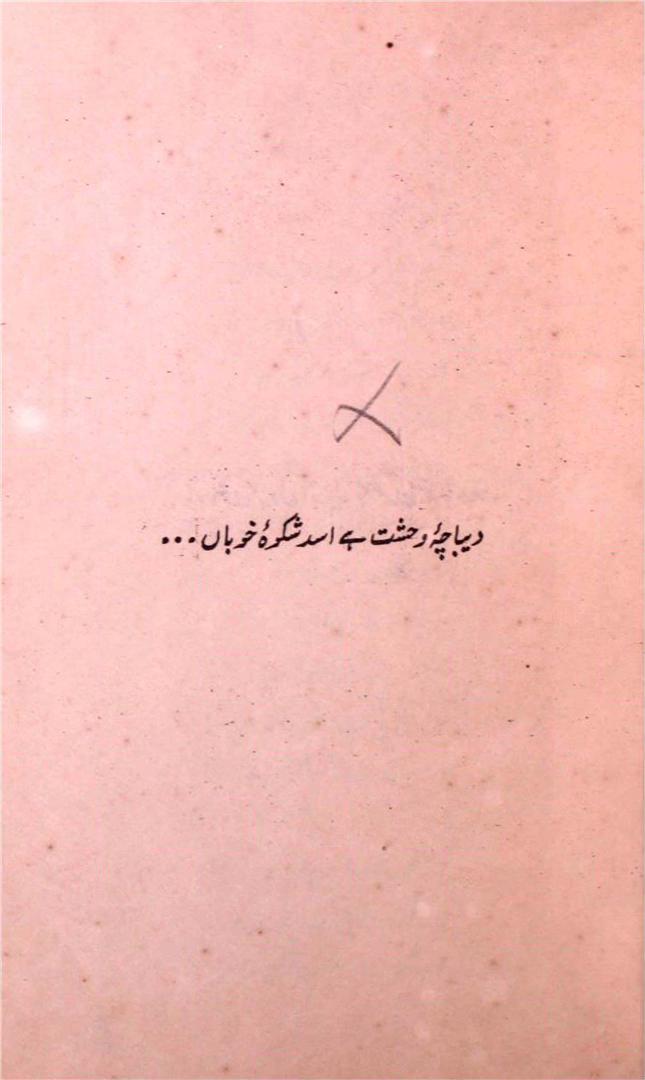 دیباچۂ وحشت ہے اسد شکوۂ خوباں...